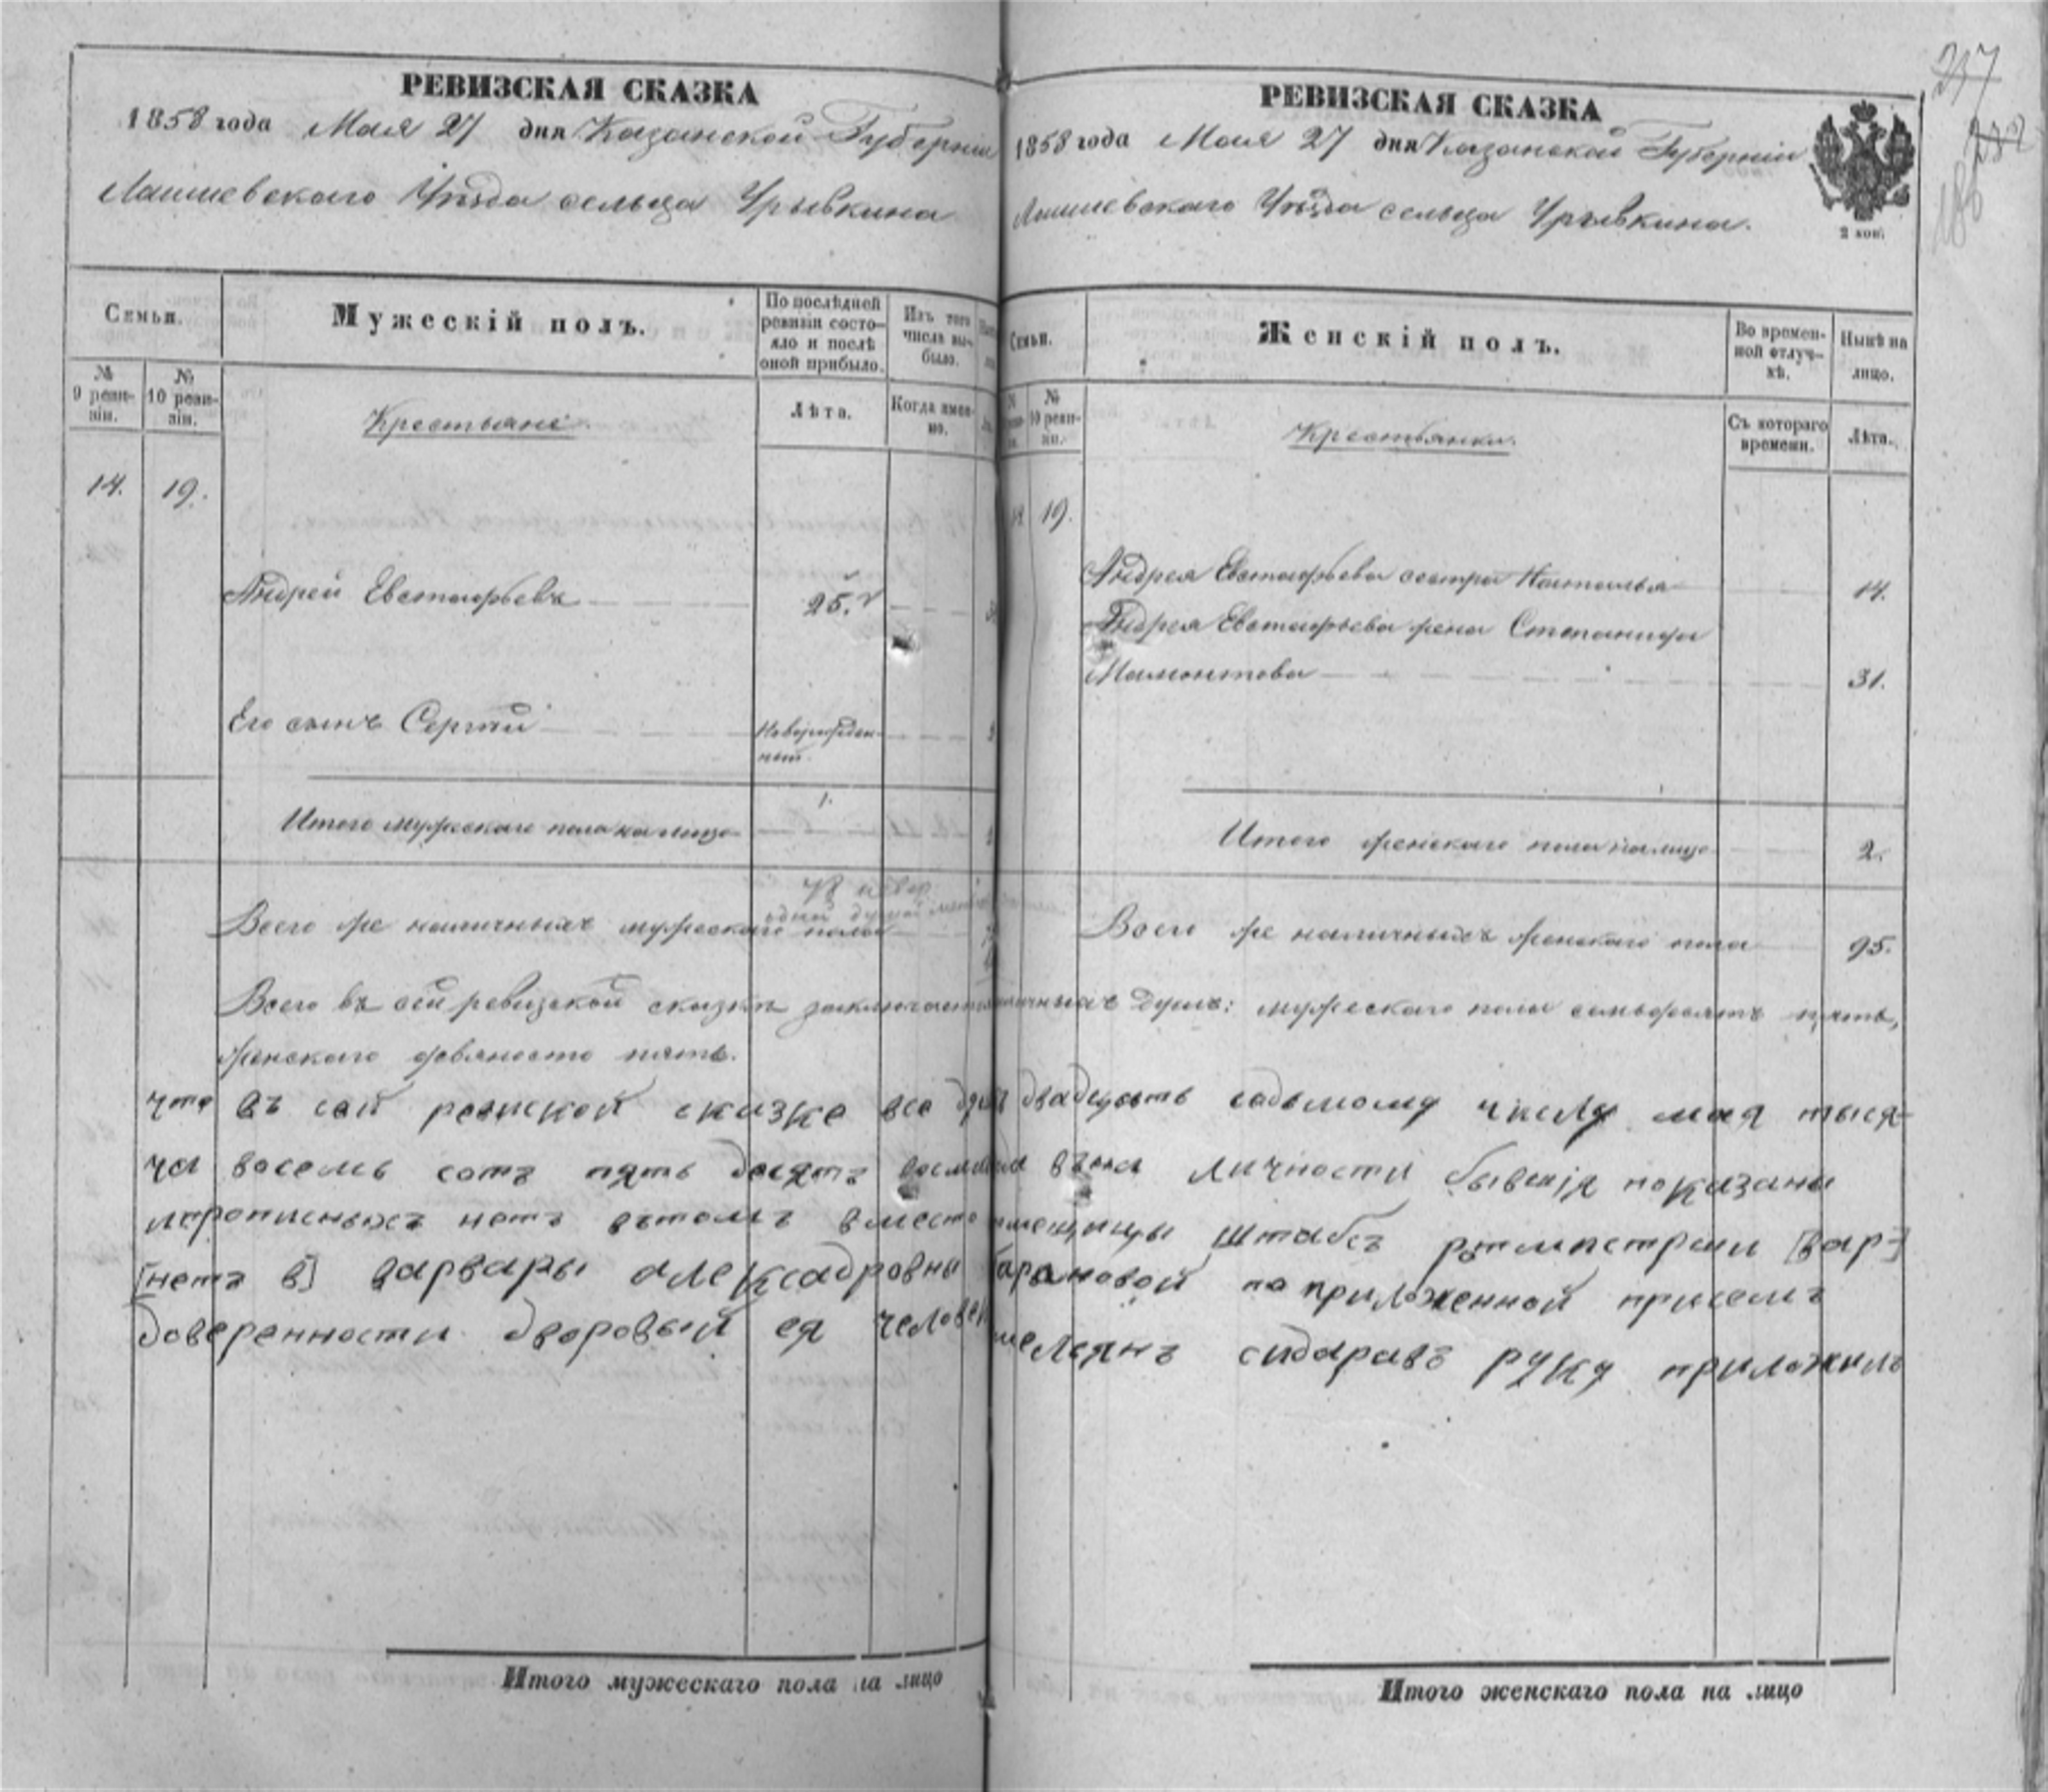 РЕВИЗСКАЯ СКАЗКА
1858 года Мая 27 дня Казанской Губерніи
Лаишевскаго Уѣзда сельца Урывкина
Семьи.
Мужескій полъ.
По послѣдней ревизіи состояло и послѣ оной прибыло.
Изъ того числа выбыло.
№ 9 ревизіи.
№ 10 ревизіи.
Крестьяне.
Лѣта.
Когда именно.
14. 19.
Андрей Евстафьевъ 25.
Его сынъ Сергѣй Новорожденный.
1.
Итого мужескаго пола на лицо
Всего же наличныхъ мужескаго пола
Всего въ сей ревизской сказкѣ заключается
женскаго девяносто пять.
что въ сей ревиской сказке все
ча восемь сотъ пять десятъ
прописныхъ нетъ вътомъ вместо
[нетъ в] варвары алексадровны
доверенности дворовый ея человек
Итого мужескаго пола на лицо
РЕВИЗСКАЯ СКАЗКА
1858 года Мая 27 дня Казанской Губерніи
Лаишевскаго Уѣзда сельца Урывкина.
2 коп.
Семьи.
Женскій полъ.
Во временной отлучкѣ.
Нынѣ на лицо.
№ 10 ревизіи.
Крестьянки.
Съ котораго времени.
Лѣта.
19.
Андрея Евстафьева сестра Наталья 14.
Андрея Евстафьева жена Степанида
Мамонтова 31.
Итого женскаго пола на лицо 2.
Всего же наличныхъ женскаго пола 95.
наличныхъ душъ: мужескаго пола семьдесятъ пять,
двадцать седьмому числу мая тыся-
личности бывшія показаны
помещицы штабсъ ротмистрши [вар-]
барановой по приложенной присемъ
емелеянъ сидаравъ руку приложилъ
Итого женскаго пола на лицо